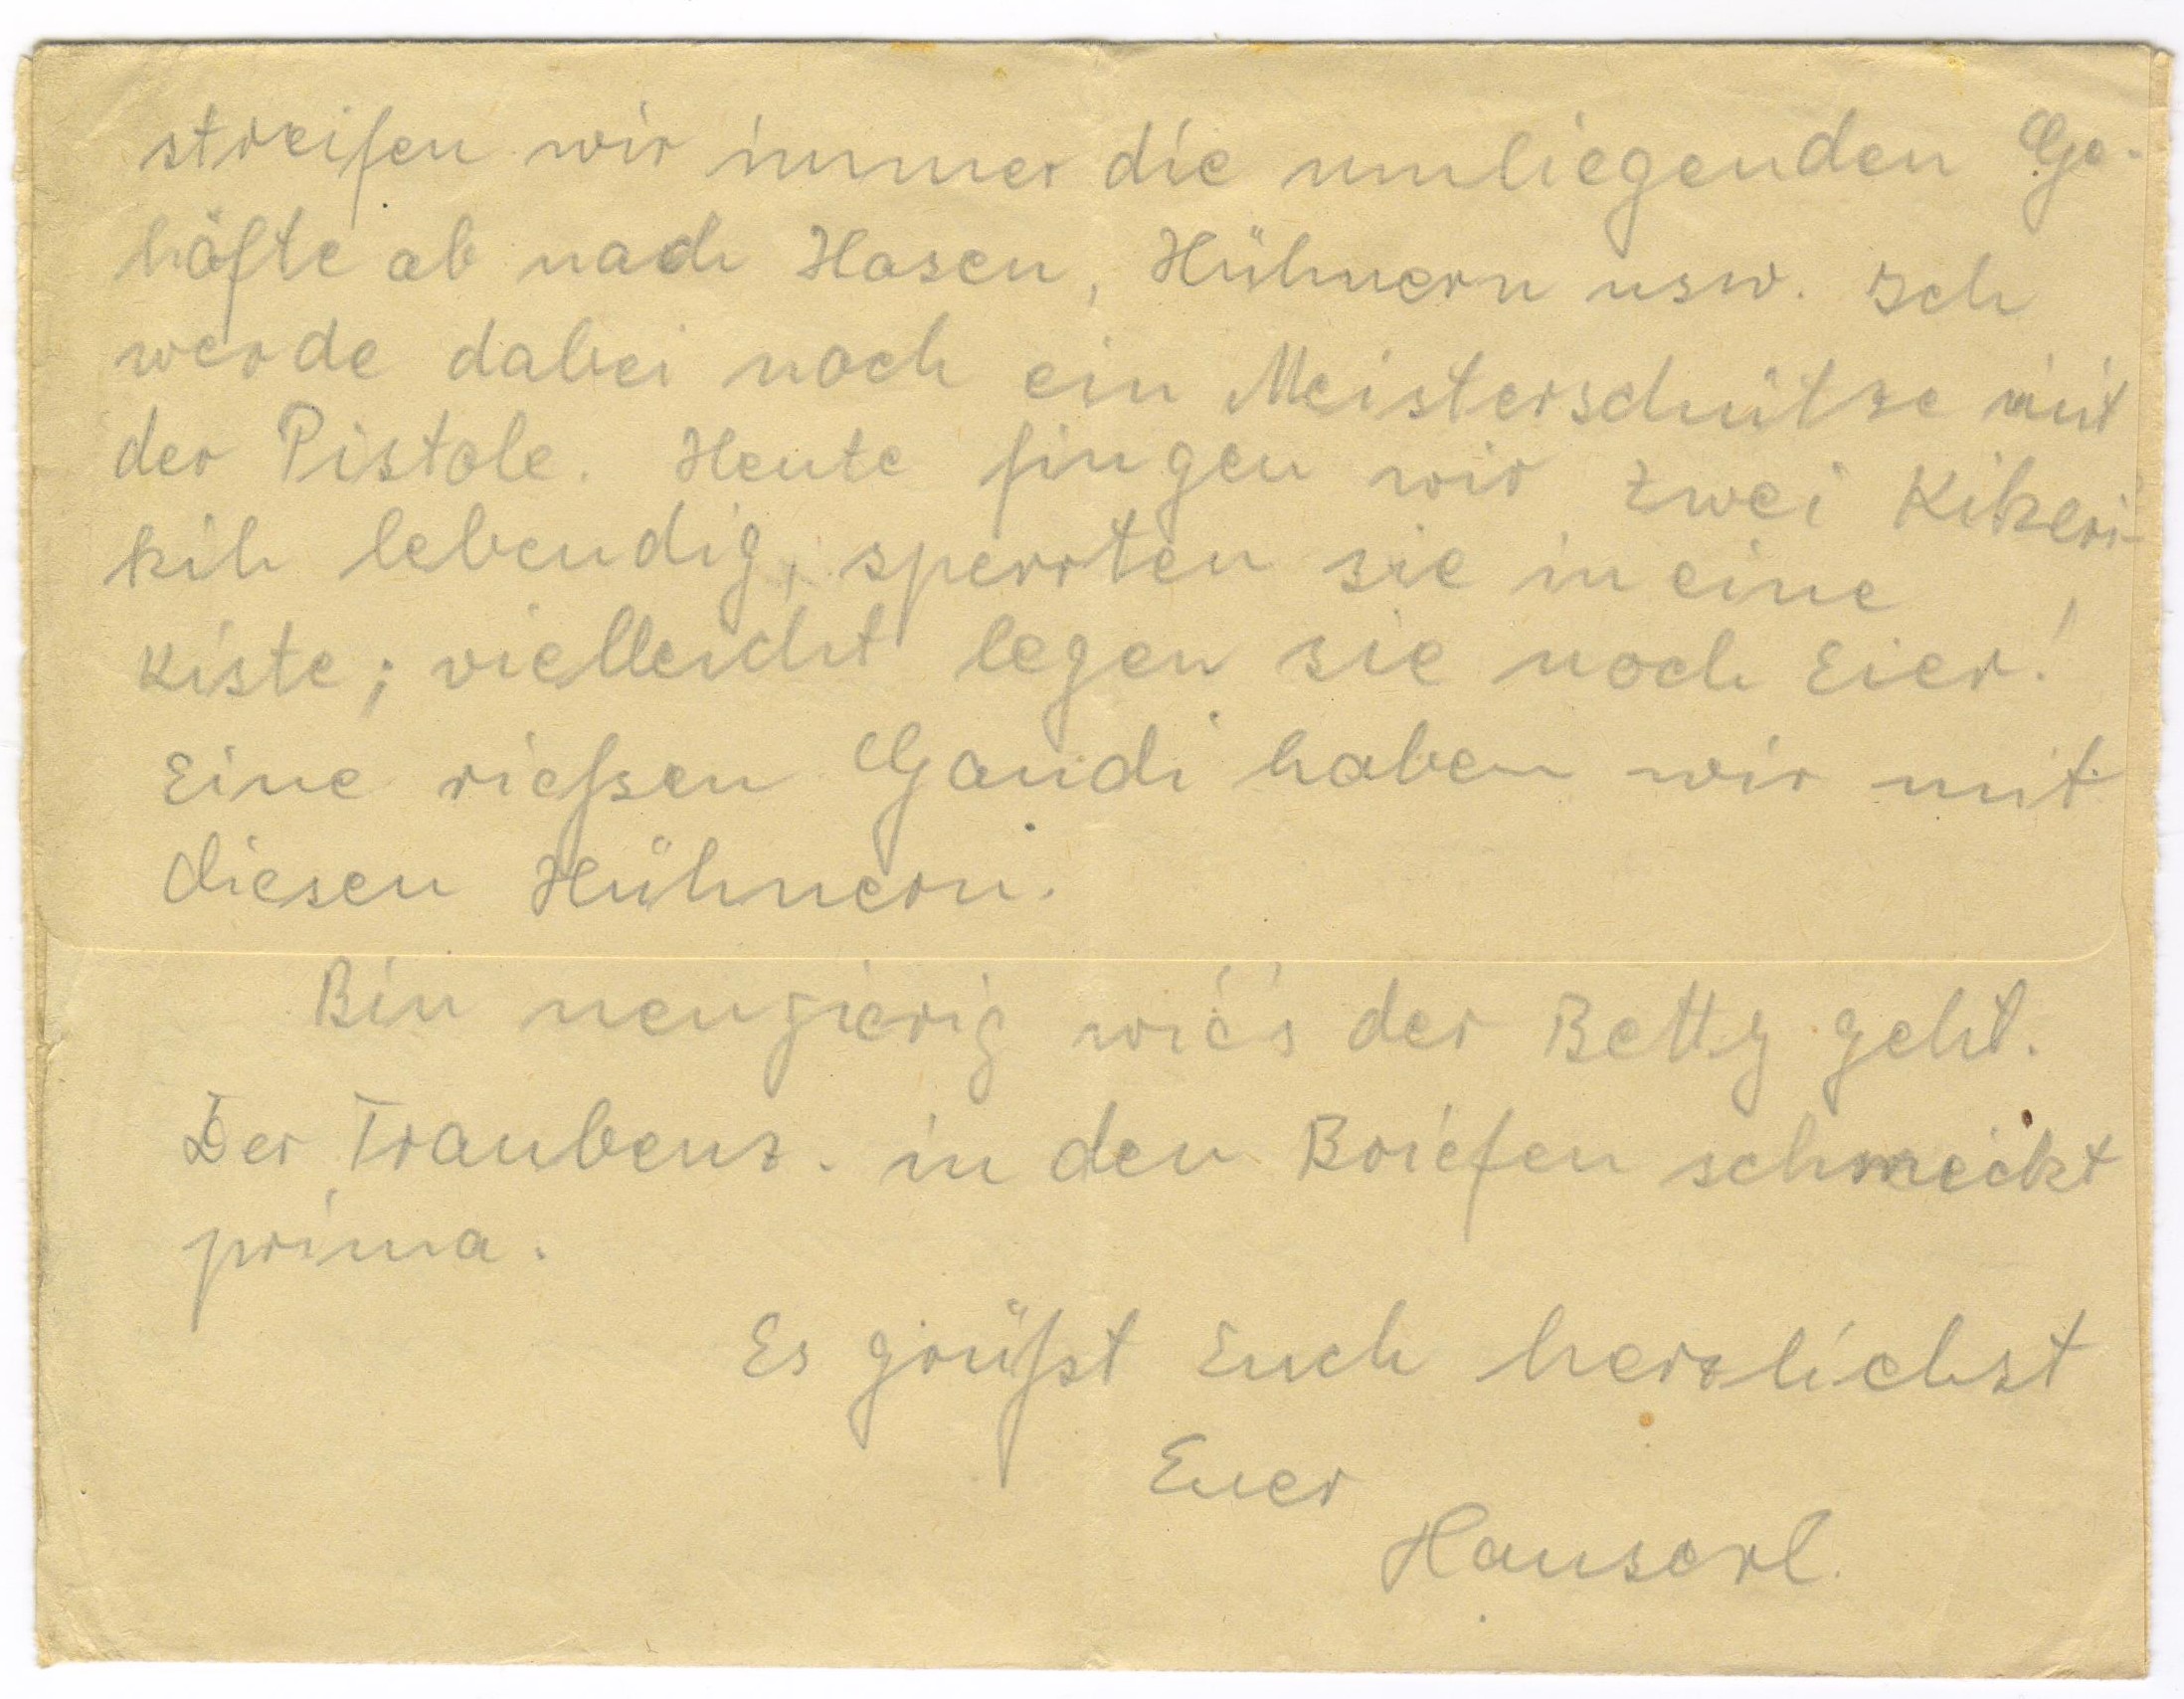 streifen wir immer die umliegenden Ge-
höfte ab nach Hasen, Hühnern usw. Ich
werde dabei noch ein Meisterschütze mit
der Pistole. Heute fingen wir zwei Kikeri-
kih lebendig, sperrten sie in eine
Kiste; vielleicht legen sie noch Eier!
Eine rießen Gaudi haben wir mit
diesen Hühnern.
Bin neugierig wie's der Betty geht.
Der Traubenz. in den Briefen schmeckt
prima.
Es grüßt Euch herzlichst
Euer
Hanserl.